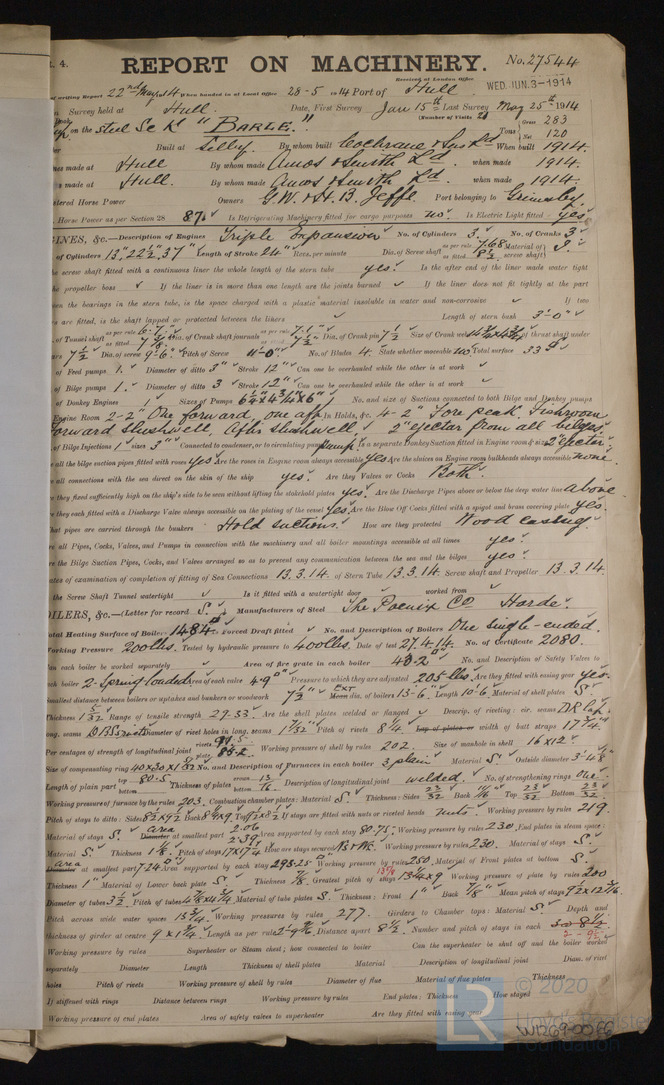 4.
REPORT ON MACHINERY. No. 27544
Received at London Office WED. JUN. 3-1914
of writing Report 22nd May 1914 When handed in at Local Office 28-5-1914 Port of Hull
Survey held at Hull. Date, First Survey Jan 15th Last Survey May 25th 1914
(Number of Visits
on the Steel Sc Kt "BARLE." Tons Gross 283
Net 120
Built at Selby. By whom built Cochrane & Sons Ld When built 1914.
made at Hull By whom made Amos & Smith Ld. when made 1914.
made at Hull. By whom made Amos & Smith Ld. when made 1914.
Horse Power Owners G.W. & H.B. Jeffs. Port belonging to Grimsby
Horse Power as per Section 28 87 Is Refrigerating Machinery fitted for cargo purposes no. Is Electric Light fitted yes
INES, &c.—Description of Engines Triple Expansion No. of Cylinders 3. No. of Cranks 3
of Cylinders 13", 22½", 37" Length of Stroke 24" Revs. per minute Dia. of Screw shaft as per rule 7.68 as fitted 8½ Material of screw shaft
screw shaft fitted with a continuous liner the whole length of the stern tube yes. Is the after end of the liner made water tight
the propeller boss If the liner is in more than one length are the joints burned If the liner does not fit tightly at the part
the bearings in the stern tube, is the space charged with a plastic material insoluble in water and non-corrosive If two
are fitted, is the shaft lapped or protected between the liners Length of stern bush 3'-0"
of Tunnel shaft as per rule 6.7" as fitted 7⅜ Dia. of Crank shaft journals as per rule 7.1" as fitted 7½ Dia. of Crank pin 7½ Size of Crank webs of thrust shaft under
7½ Dia. of screw 9-6" Pitch of Screw 11-0" No. of Blades 4. State whether moveable no Total surface 33
of Feed pumps 1. Diameter of ditto 3" Stroke 12" Can one be overhauled while the other is at work
of Bilge pumps 1. Diameter of ditto 3" Stroke 12" Can one be overhauled while the other is at work
of Donkey Engines 1 Sizes of Pumps 6½ x 4¾ x 6" No. and size of Suctions connected to both Bilge and Donkey pumps
Engine Room 2-2" One forward, one aft. In Holds, &c. 4-2" Fore peak. Fishroom
Forward slushwell, After slushwell. 2" ejector from all bilges.
of Bilge Injections 1 sizes 3" Connected to condenser, or to circulating pump pump. Is a separate Donkey Suction fitted in Engine room & size 2" ejector.
all the bilge suction pipes fitted with roses yes Are the roses in Engine room always accessible yes Are the sluices on Engine room bulkheads always accessible none.
all connections with the sea direct on the skin of the ship yes. Are they Valves or Cocks Both.
they fixed sufficiently high on the ship's side to be seen without lifting the stokehold plates yes. Are the Discharge Pipes above or below the deep water line above
they each fitted with a Discharge Valve always accessible on the plating of the vessel yes. Are the Blow Off Cocks fitted with a spigot and brass covering plate yes.
hat pipes are carried through the bunkers Hold suctions. How are they protected Wood casing.
all Pipes, Cocks, Valves, and Pumps in connection with the machinery and all boiler mountings accessible at all times yes.
the Bilge Suction Pipes, Cocks, and Valves arranged so as to prevent any communication between the sea and the bilges yes.
ates of examination of completion of fitting of Sea Connections 13.3.14. of Stern Tube 13.3.14. Screw shaft and Propeller 13.3.14.
the Screw Shaft Tunnel watertight Is it fitted with a watertight door worked from
OILERS, &c.—(Letter for record S.) Manufacturers of Steel The Poenix Co Horde.
Total Heating Surface of Boiler 1484 Forced Draft fitted No. and Description of Boilers One single-ended.
Working Pressure 200 lbs. Tested by hydraulic pressure to 400 lbs. Date of test 27.4.14. No. of Certificate 2080.
Can each boiler be worked separately Area of fire grate in each boiler 43.2 No. and Description of Safety Valves to
each boiler 2-Spring loaded Area of each valve 4.9 Pressure to which they are adjusted 205 lbs. Are they fitted with easing gear yes.
Smallest distance between boilers or uptakes and bunkers or woodwork 7½" EXT Mean dia. of boilers 13-6" Length 10-6 Material of shell plates S.
Thickness 1 5/32 Range of tensile strength 29-33. Are the shell plates welded or flanged Descrip. of riveting: cir. seams DR Lap
long. seams DBS Diameter of rivet holes in long. seams 1 7/32 Pitch of rivets 8¼ Lap of plates or width of butt straps 17¾.
Per centages of strength of longitudinal joint rivets plate 85.2 Working pressure of shell by rules 202. Size of manhole in shell 16 x 12"
Size of compensating ring 40 x 30 x 1 5/32 No. and Description of Furnaces in each boiler 3 plain Material S. Outside diameter
Length of plain part top 80.5 bottom Thickness of plates crown 13/16 bottom Description of longitudinal joint welded. No. of strengthening rings One
Working pressure of furnace by the rules 203. Combustion chamber plates: Material S. Thickness: Sides 23/32 Back 11/16 Top 23/32 Bottom 23/32
Pitch of stays to ditto: Sides 8½ x 9½ Back Top If stays are fitted with nuts or riveted heads nuts. Working pressure by rules 219
Material of stays S. area Diameter at smallest part 2.06 2.39 Area supported by each stay 80.75 Working pressure by rules 230. End plates in steam space
Material S. Thickness 1⅛. Pitch of stays 17 x 17¼ How are stays secured Working pressure by rules 230. Material of stays S.
area Diameter at smallest part 7.24 Area supported by each stay 293.25 Working pressure by rules 250. Material of Front plates at bottom S.
Thickness 1" Material of Lower back plate S. Thickness ⅞. Greatest pitch of stays 13¾ x 9 Working pressure of plate by rules 200
Diameter of tubes 3½. Pitch of tubes Material of tube plates S. Thickness: Front 1" Back ⅞" Mean pitch of stays
Pitch across wide water spaces 13¾. Working pressures by rules 277. Girders to Chamber tops: Material S. Depth and
thickness of girder at centre 9 x 1¾. Length as per rule Distance apart 8½. Number and pitch of stays in each
Working pressure by rules Superheater or Steam chest; how connected to boiler Can the superheater be shut off and the boiler worked
separately Diameter Length Thickness of shell plates Material Description of longitudinal joint Diam. of rivet
holes Pitch of rivets Working pressure of shell by rules Diameter of flue Material of flue plates Thickness
If stiffened with rings Distance between rings Working pressure by rules End plates: Thickness How stayed
Working pressure of end plates Area of safety valves to superheater Are they fitted with easing gear
© 2020
LR Lloyd's Register
Foundation
W1269-0066